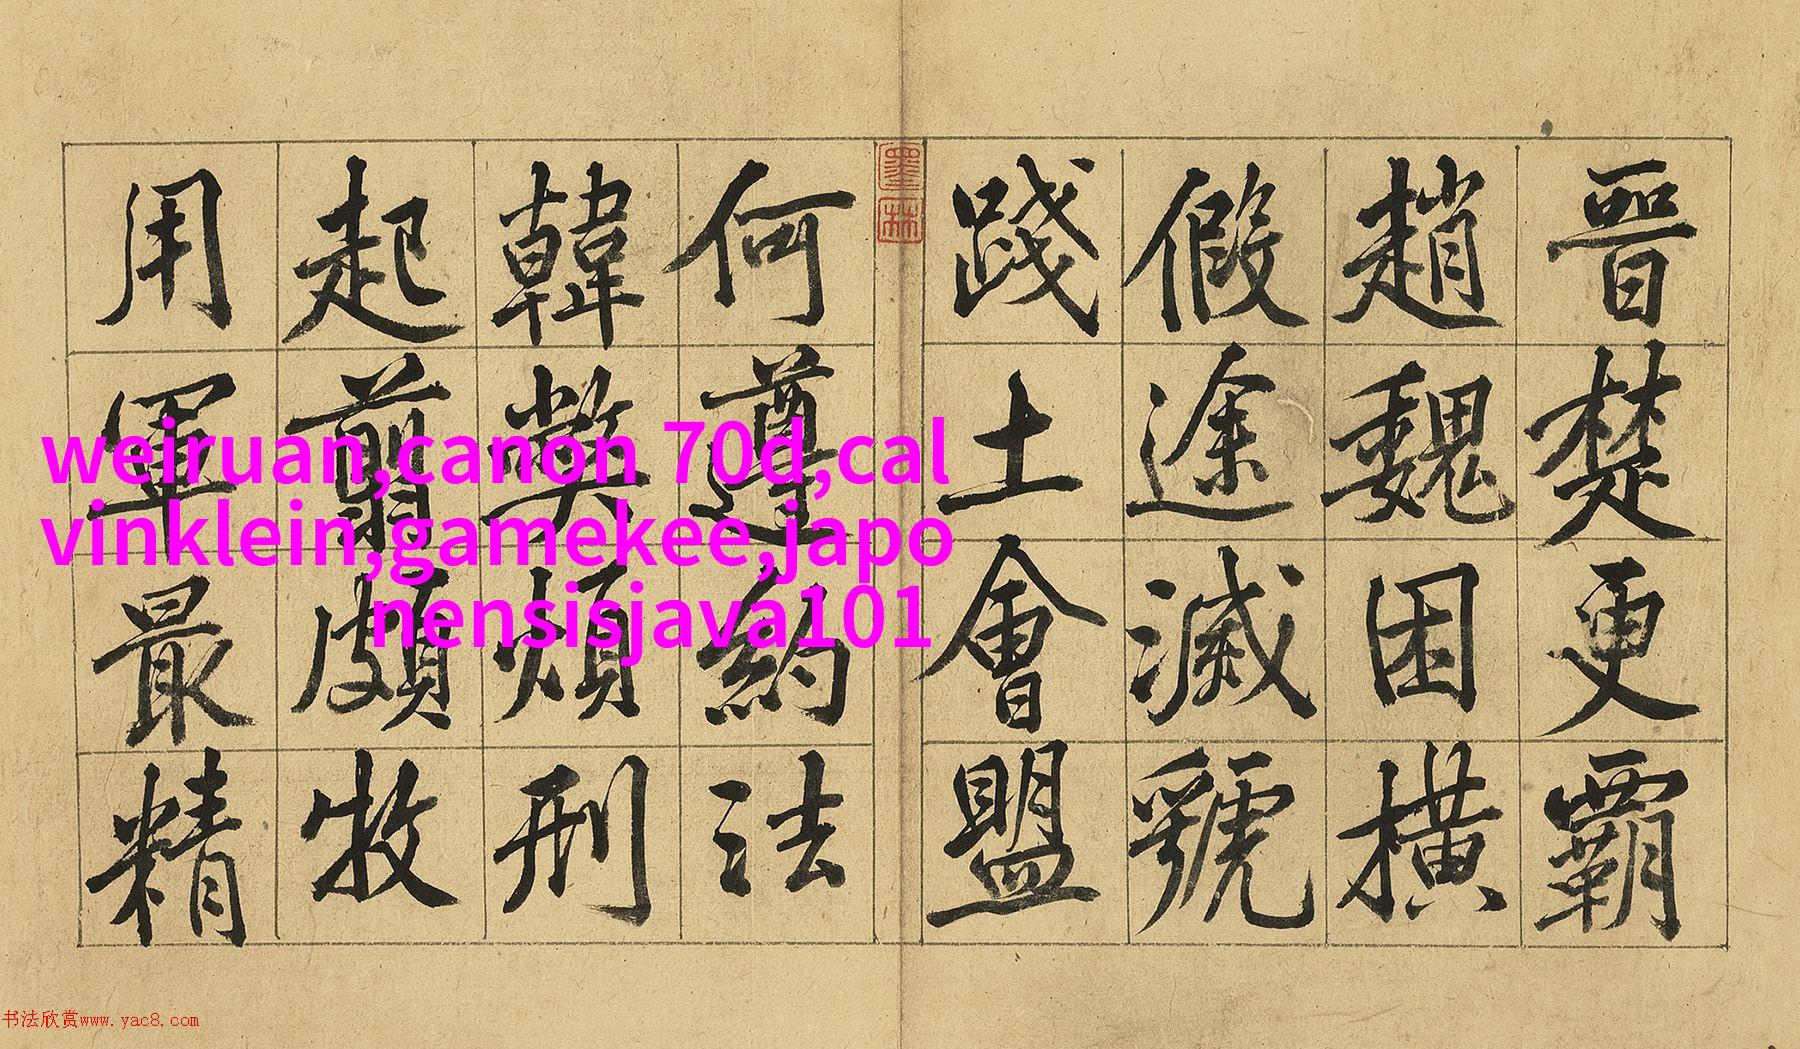 晉楚更霸
趙魏困橫
假途滅虢
踐土會盟
墨林
何遵約法
韓弊煩刑
起翦頗牧
用軍最精
weiruan,canon 70d,cal
vinklein,gamekee,japo
nensisjava101
书法欣赏www.yac8.com